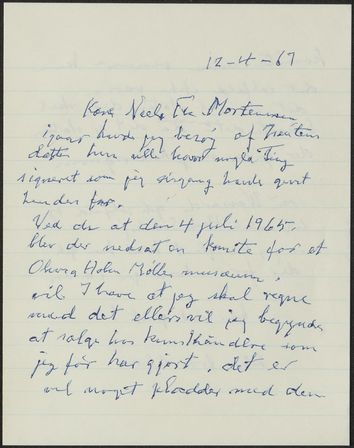 12-4-67
Kære Niels Fr. Mortensen
igaar havde jeg besøg af Jreutens
datter hun ville have nogle Ting
signeret som jeg engang havde gjort
hendes far.
Ved du at den 4 juli 1965.
blev der nedsat en komite for et
Olivia Holm Møller museum.
vil I have at jeg skal regne
med det ellers vil jeg begynde
at sælge hos kunsthandlere som
jeg før har gjort, det er
vel noget pladder med den